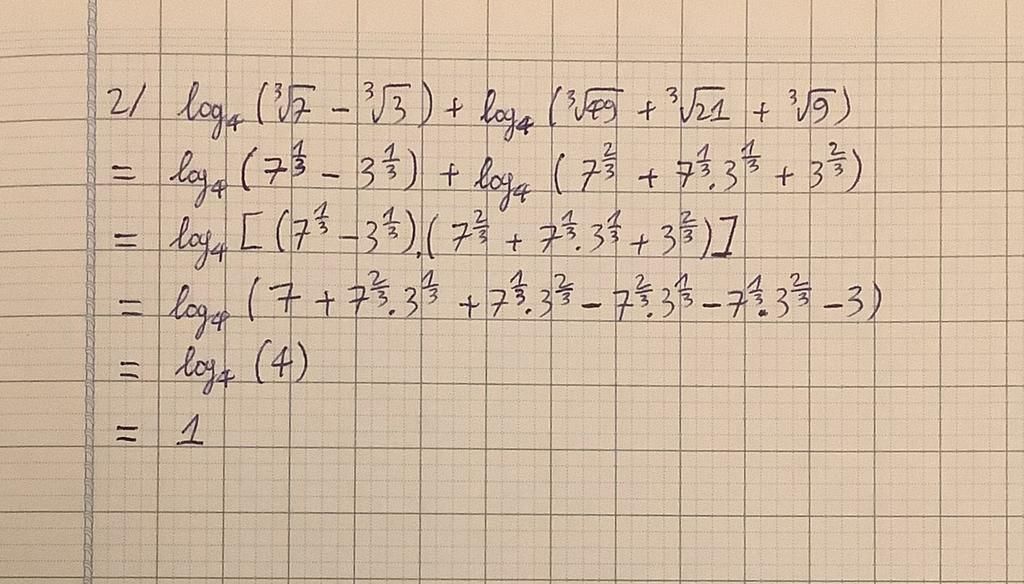 2/ log₄ (∛7 − ∛3) + log₄ (∛49 + ∛21 + ∛9)
= log₄ (7^{1/3} − 3^{1/3}) + log₄ (7^{2/3} + 7^{1/3}.3^{1/3} + 3^{2/3})
= log₄ [(7^{1/3} − 3^{1/3}).(7^{2/3} + 7^{1/3}.3^{1/3} + 3^{2/3})]
= log₄ (7 + 7^{2/3}.3^{1/3} + 7^{1/3}.3^{2/3} − 7^{2/3}.3^{1/3} − 7^{1/3}.3^{2/3} − 3)
= log₄ (4)
= 1